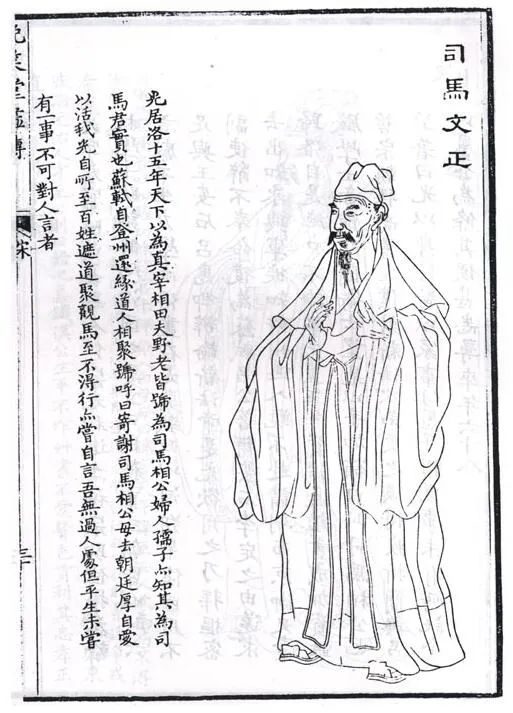 司馬文正
光居洛十五年天下以為真宰相田夫野老皆號為司馬相公婦人孺子亦知其為司
馬君實也蘇軾自登州還緣道人相聚號呼曰寄謝司馬相公毋去朝廷厚自愛
以活我光自所至百姓遮道聚觀馬至不得行亦嘗自言吾無過人處但平生未嘗
有一事不可對人言者
晚笑堂畫傳